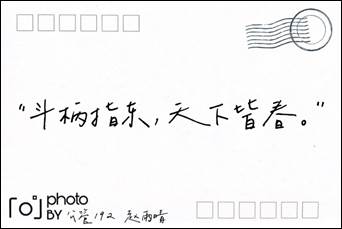 “斗柄指东，天下皆春。”
「o」photo
BY 公管192 赵雨晴